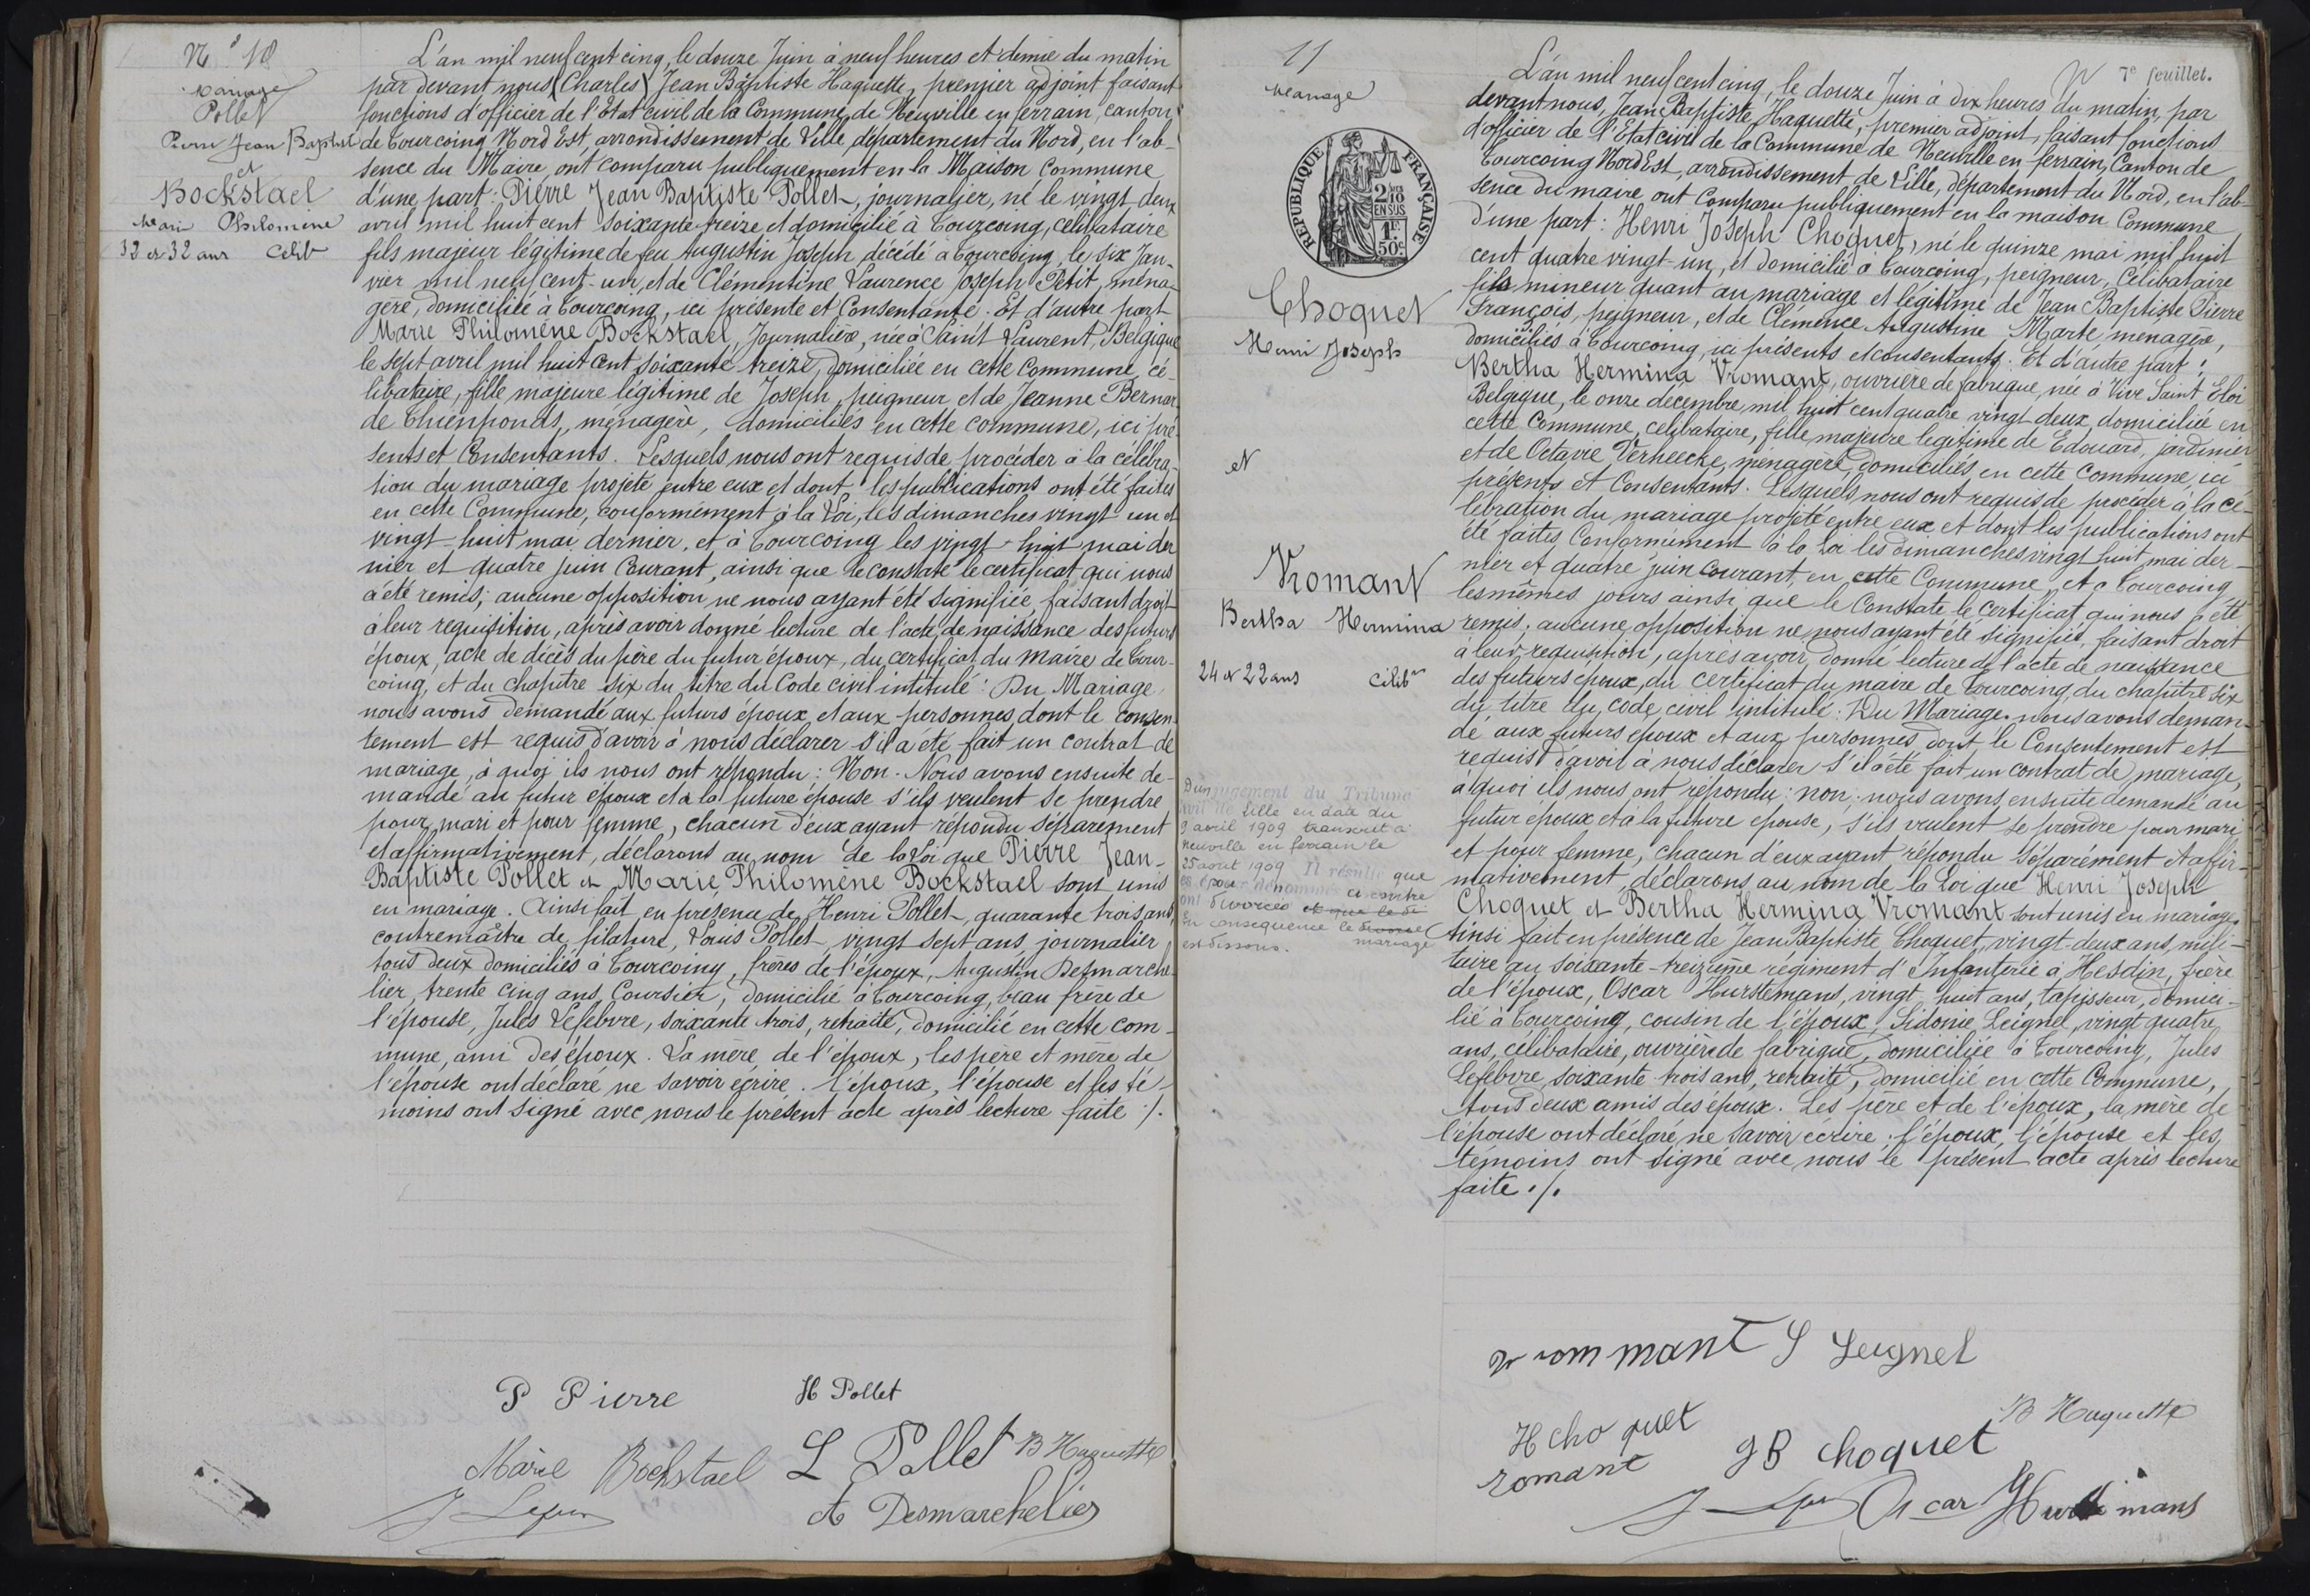 N° 10
Mariage
Pollet
Pierre Jean Baptiste
et
Bockstael
Marie Philomène
32 et 32 ans Célib
L'an mil neuf cent cinq, le douze Juin à neuf heures et demie du matin
par devant nous (Charles) Jean Baptiste Haquette, premier adjoint faisant
fonctions d'officier de l'Etat civil de la Commune de Neuville en ferrain, canton
de Tourcoing Nord Est, arrondissement de Lille, département du Nord, en l'ab-
sence du Maire, ont comparu publiquement en la Maison Commune
d'une part: Pierre Jean Baptiste Pollet, journalier, né le vingt deux
avril mil huit cent soixante treize et domicilié à Tourcoing, célibataire
fils majeur légitime de feu Augustin Joseph, décédé à Tourcoing, le six Jan-
vier mil neuf cent-un, et de Clémentine Laurence Joseph Petit, ména-
gère, domiciliée à Tourcoing, ici présente et Consentante. Et d'autre part
Marie Philomène Bockstael, Journalière, née à Saint Laurent, Belgique
le sept avril mil huit cent soixante-treize, domiciliée en cette Commune, cé-
libataire, fille majeure légitime de Joseph, peigneur et de Jeanne Bernar-
de Thienponds, ménagère, domiciliés en cette commune, ici pré-
sents et Consentants. Lesquels nous ont requis de procéder à la célébra-
tion du mariage projeté entre eux et dont les publications ont été faites
en cette Commune, conformément à la Loi, les dimanches vingt un et
vingt-huit mai dernier, et à Tourcoing les vingt-huit mai der
nier et quatre juin Courant, ainsi que le constate le certificat qui nous
a été remis; aucune opposition ne nous ayant été signifiée, faisant droit
à leur requisition, après avoir donné lecture de l'acte de naissance des futurs
époux, acte de décès du père du futur époux, du certificat du Maire de Tour-
coing, et du chapitre six du titre du Code civil intitulé: Du Mariage,
nous avons demandé aux futurs époux et aux personnes dont le consen-
tement est requis d'avoir à nous déclarer s'il a été fait un contrat de
mariage, à quoi ils nous ont répondu: Non. Nous avons ensuite de-
mandé au futur époux et à la future épouse s'ils veulent se prendre
pour mari et pour femme, chacun d'eux ayant répondu séparement
et affirmativement, déclarons au nom de la Loi que Pierre Jean-
Baptiste Pollet et Marie Philomène Bockstael sont unis
en mariage. Ainsi fait en présence de Henri Pollet, quarante trois ans,
contremaître de filature, Louis Pollet, vingt sept ans, journalier,
tous deux domiciliés à Tourcoing, frères de l'époux, Augustin Desmarche-
lier, trente cinq ans, Coursier, domicilié à Tourcoing, beau frère de
l'épouse, Jules Lefebvre, soixante trois, retraité, domicilié en cette com-
mune, ami des époux. La mère de l'époux, les père et mère de
l'épouse ont déclaré ne savoir écrire. l'époux, l'épouse et les té-
moins ont signé avec nous le présent acte après lecture faite ./.
P Pierre
H Pollet
Marie Bockstael
L Pollet
B Haquette
A Desmarchelier
11
Mariage
RÉPUBLIQUE FRANÇAISE
2/10
EN SUS
1F
50c
Choquet
Henri Joseph
et
Vromant
Bertha Hermina
24 et 22 ans Célibre
D'un jugement du Tribunal
civil de Lille en date du
9 avril 1909 transcrit à
Neuville en ferrain le
25 août 1909 Il résulte que
les époux dénommés ci contre
ont divorcés et que le di
En conséquence le divorce
mariage
est dissous.
7e feuillet.
L'an mil neuf cent cinq, le douze Juin à dix heures du matin, par
devant nous, Jean Baptiste Haquette, premier adjoint, faisant fonctions
d'officier de l'Etat civil de la Commune de Neuville en ferrain, Canton de
Tourcoing Nord Est, arrondissement de Lille, département du Nord, en l'ab-
sence du maire ont Comparu publiquement en la maison Commune
d'une part: Henri Joseph Choquet, né le quinze mai mil huit
cent quatre vingt-un, et domicilié à Tourcoing, peigneur, Célibataire
fils mineur quant au mariage et légitime de Jean Baptiste Pierre
François, peigneur, et de Clémence Augustine Marte, ménagère,
domiciliés à Tourcoing, ici présents et consentants. Et d'autre part:
Bertha Hermina Vromant, ouvrière de fabrique, née à Vive Saint Eloi
Belgique, le onze décembre mil huit cent quatre vingt deux, domiciliée en
cette Commune, célibataire, fille majeure legitime de Edouard, jardinier
et de Octavie Verheecke, ménagère, domiciliés en cette Commune, ici
présents et Consentants. Lesquels nous ont requis de procéder à la cé-
lébration du mariage projeté entre eux et dont les publications ont
été faites Conformément à la Loi les dimanches vingt huit mai der-
nier et quatre juin Courant, en cette Commune et à Tourcoing
les mêmes jours ainsi que le Constate le Certificat qui nous a été
remis; aucune opposition ne nous ayant été signifiée, faisant droit
à leur requisition, après avoir donné lecture de l'acte de naissance
des futurs époux, du certificat du maire de Tourcoing, du chapitre six
du titre du code civil intitulé: Du Mariage. nous avons deman-
dé aux futurs époux et aux personnes dont le Consentement est
requis d'avoir à nous déclarer s'il a été fait un contrat de mariage,
à quoi ils nous ont répondu: non; nous avons ensuite demandé au
futur époux et à la future épouse, s'ils veulent se prendre pour mari
et pour femme, chacun d'eux ayant répondu séparément et affir-
mativement, déclarons au nom de la Loi que Henri Joseph
Choquet et Bertha Hermina Vromant sont unis en mariage.
Ainsi fait en présence de Jean Baptiste Choquet, vingt-deux ans, mili-
taire au soixante-treizième régiment d'Infanterie à Hesdin, frère
de l'époux, Oscar Hurstemans, vingt huit ans, tapisseur, domici-
lié à Tourcoing, cousin de l'époux, Sidonie Leignel, vingt quatre
ans, célibataire, ouvrière de fabrique, domiciliée à Tourcoing, Jules
Lefebvre, soixante trois ans, retraité, domicilié en cette Commune,
tous deux amis des époux. Les père et de l'époux, la mère de
l'épouse ont déclaré ne savoir écrire; l'époux, l'épouse et les
témoins ont signé avec nous le présent acte après lecture
faite ./.
Vrommant S Leignel
H choquet
B Haquette
romant
J B choquet
Oscar Hurstemans